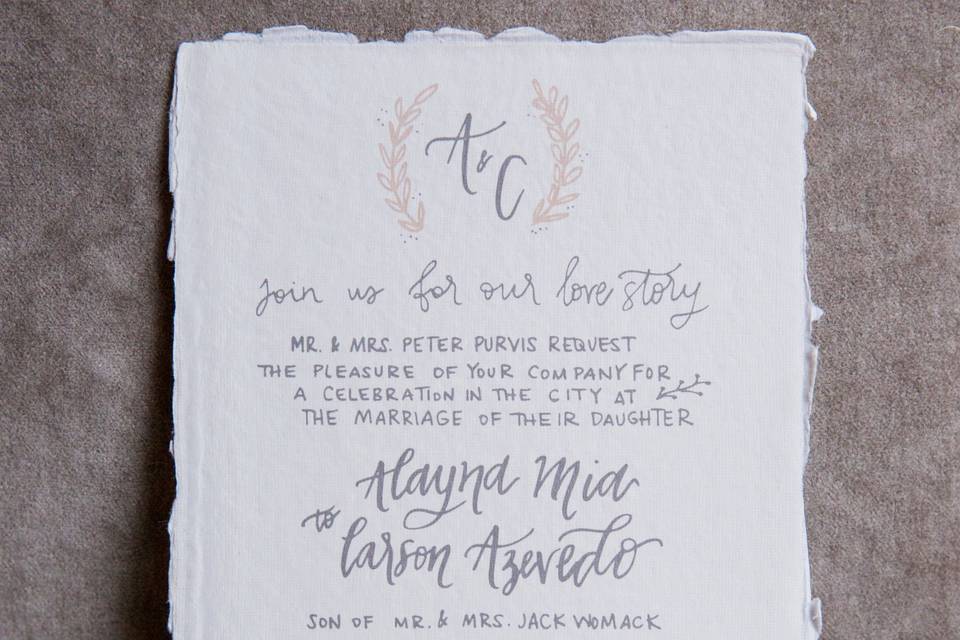 A & C
join us for our love story
MR. & MRS. PETER PURVIS REQUEST
THE PLEASURE OF YOUR COMPANY FOR
A CELEBRATION IN THE CITY AT
THE MARRIAGE OF THEIR DAUGHTER
Alayna Mia
to
Carson Azevedo
SON OF MR. & MRS. JACK WOMACK